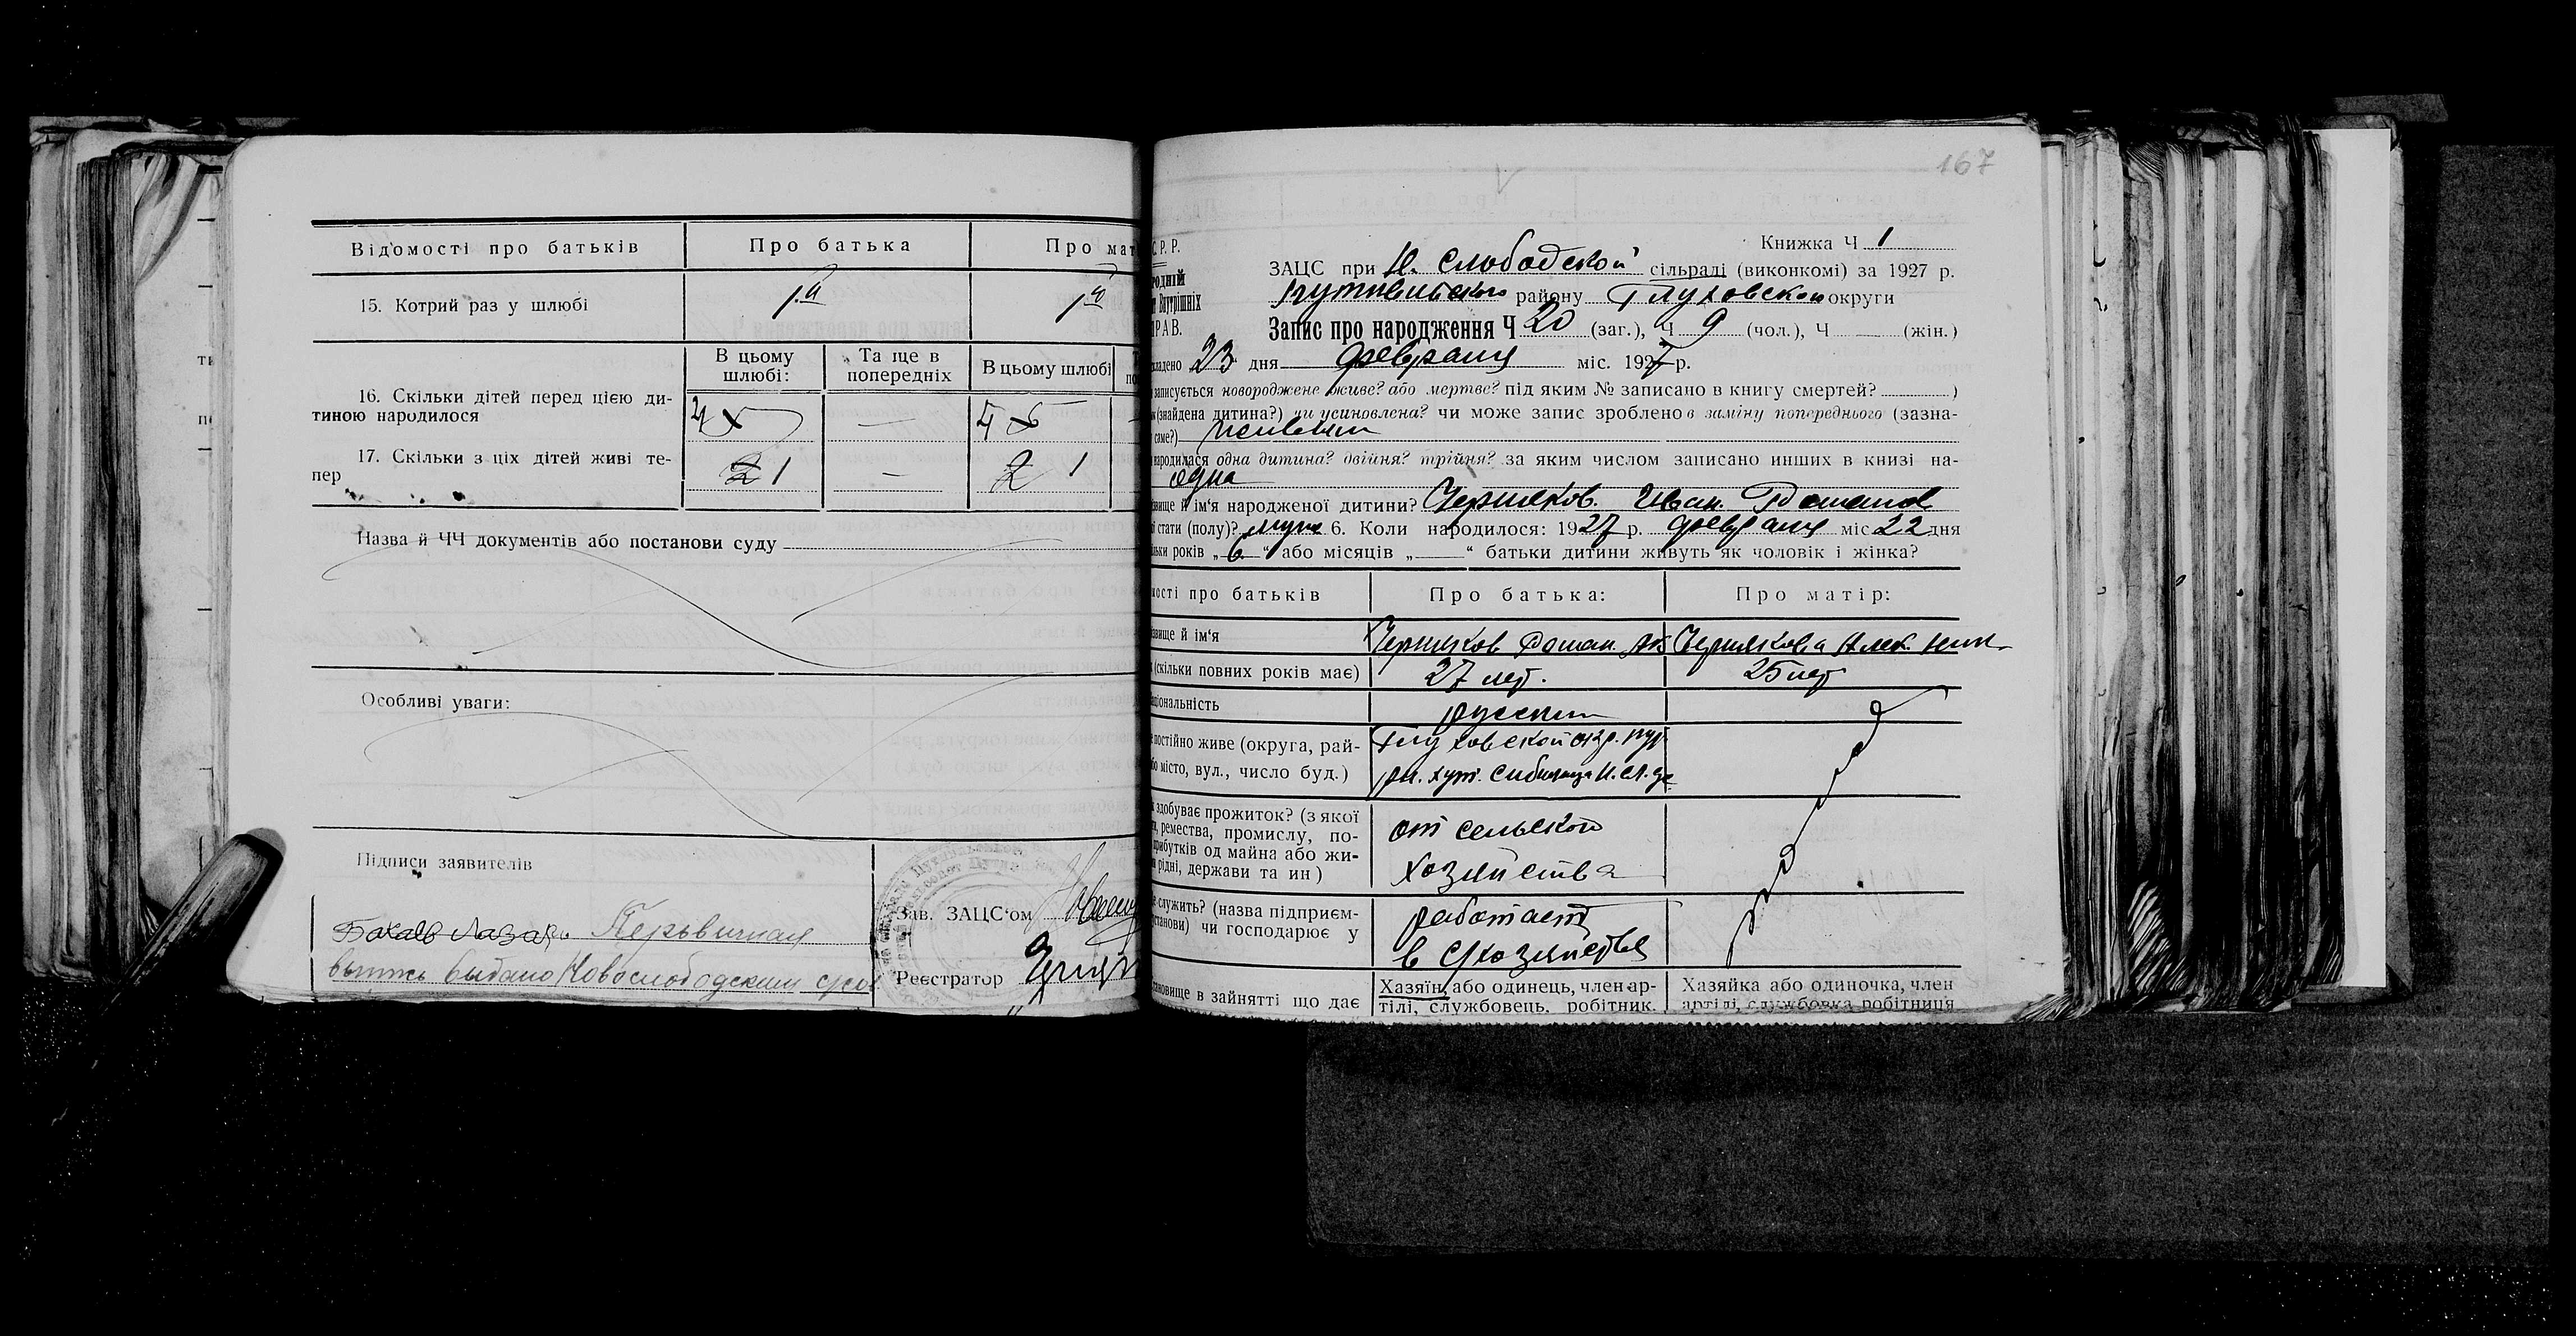 Відомості про батьків
Про батька
Про мат
15. Котрий раз у шлюбі
1й
1й
В цьому шлюбі:
Та ще в попередніх
В цьому шлюбі
16. Скільки дітей перед цією ди-
тиною народилося
4
—
4
17. Скільки з ціх дітей живі те-
пер
2 1
—
2 1
Назва й ЧЧ документів або постанови суду
Особливі уваги:
Підписи заявителів
Бокаев Лазарь Перьвичная
выпись выдано Новослободским с/со
Зав. ЗАЦС'ом
Реєстратор
167
С.Р.Р.
Книжка Ч 1
ЗАЦС при Н. Слободской сільраді (виконкомі) за 1927 р.
Внутрішніх
Путивльского району Глуховской округи
ПРАВ.
Запис про народження Ч 20 (заг.), Ч 9 (чол.), Ч — (жін.)
кладено 23 дня февраля міс. 1927 р.
записується новороджене живе? або мертве? під яким № записано в книгу смертей? )
(знайдена дитина?) чи усиновлена? чи може запис зроблено в заміну попереднього (зазна-
саме?) живым
народилася одна дитина? двійня? трійня? за яким числом записано инших в книзі на-
одна
звище й ім'я народженої дитини? Черняков Иван Роман
ої стати (полу)? муж 6. Коли народилося: 1927 р. февраля міс 22 дня
льки років „6“ або місяців „—“ батьки дитини живуть як чоловік і жінка?
мості про батьків
Про батька:
Про матір:
звище й ім'я
Черняков Роман
Чернякова Алек.
(скільки повних років має)
27 лет.
25 лет
аціональність
русский
постійно живе (округа, рай-
бо місто, вул., число буд.)
Глуховской окр. Пут.
рн. хут. Н. Сл.
здобуває прожиток? (з якої
ремества, промислу, по-
прибутків од майна або жи-
рідні, держави та ин)
от сельского
хозяйства
служить? (назва підприєм-
станови) чи господарює у
работает
в с/хозяйстве
ановище в зайнятті що дає
Хазяїн, або одинець, член ар-
тілі, службовець, робітник.
Хазяйка або одиночка, член
артілі, службовка робітниця